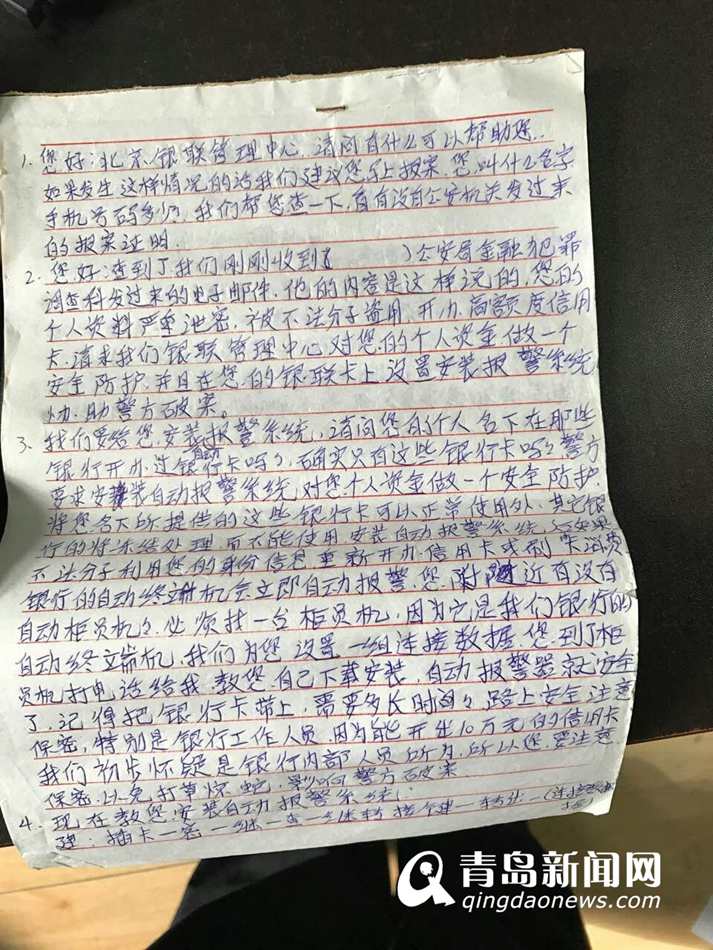 1. 您好:北京银联管理中心,请问有什么可以帮助您.
如果发生这样情况的话我们建议您马上报案.您叫什么名字
手机号码多少,我们帮您查一下,看有没有公安机关发过来
的报案证明.
2. 您好:查到了我们刚刚收到【 )公安局金融犯罪
调查科发过来的电子邮件,他的内容是这样说的,您的
个人资料严重泄密,被不法分子盗用,开办高额度信用
卡,请求我们银联管理中心对您的个人资金做一个
安全防护.并且在您的银联卡上设置安装报警系统
协助警方破案。
3. 我们要给您安装报警系统,请问您的个人名下在那些
银行开办过银行卡吗?,确实只有这些银行卡吗?警方
要求安装自动报警系统,对您个人资金做一个安全防护,
将您名下所提供的这些银行卡可以正常使用外.其它银
行的将冻结处理而不能使用.安装自动报警系统后如果
不法分子利用您的身份信息重新开办信用卡或刷卡消费
银行的自动终端机会立即自动报警.您附近有没有
自动柜员机?必须找一台柜员机,因为它是我们银行的
自动终端机,我们为您设置一组连接数据.您到了柜
员机打电话给我.教您自己下载安装.自动报警器就安全
了,记得把银行卡带上,需要多长时间?路上安全注意
保密,特别是银行工作人员因为能开出10万元的信用卡
我们初步怀疑是银行内部人员所为,所以您要注意
保密以免打草惊蛇,影响警方破案
4. 现在教您安装自动报警系统.
插卡一密一
青岛新闻网
qingdaonews.com